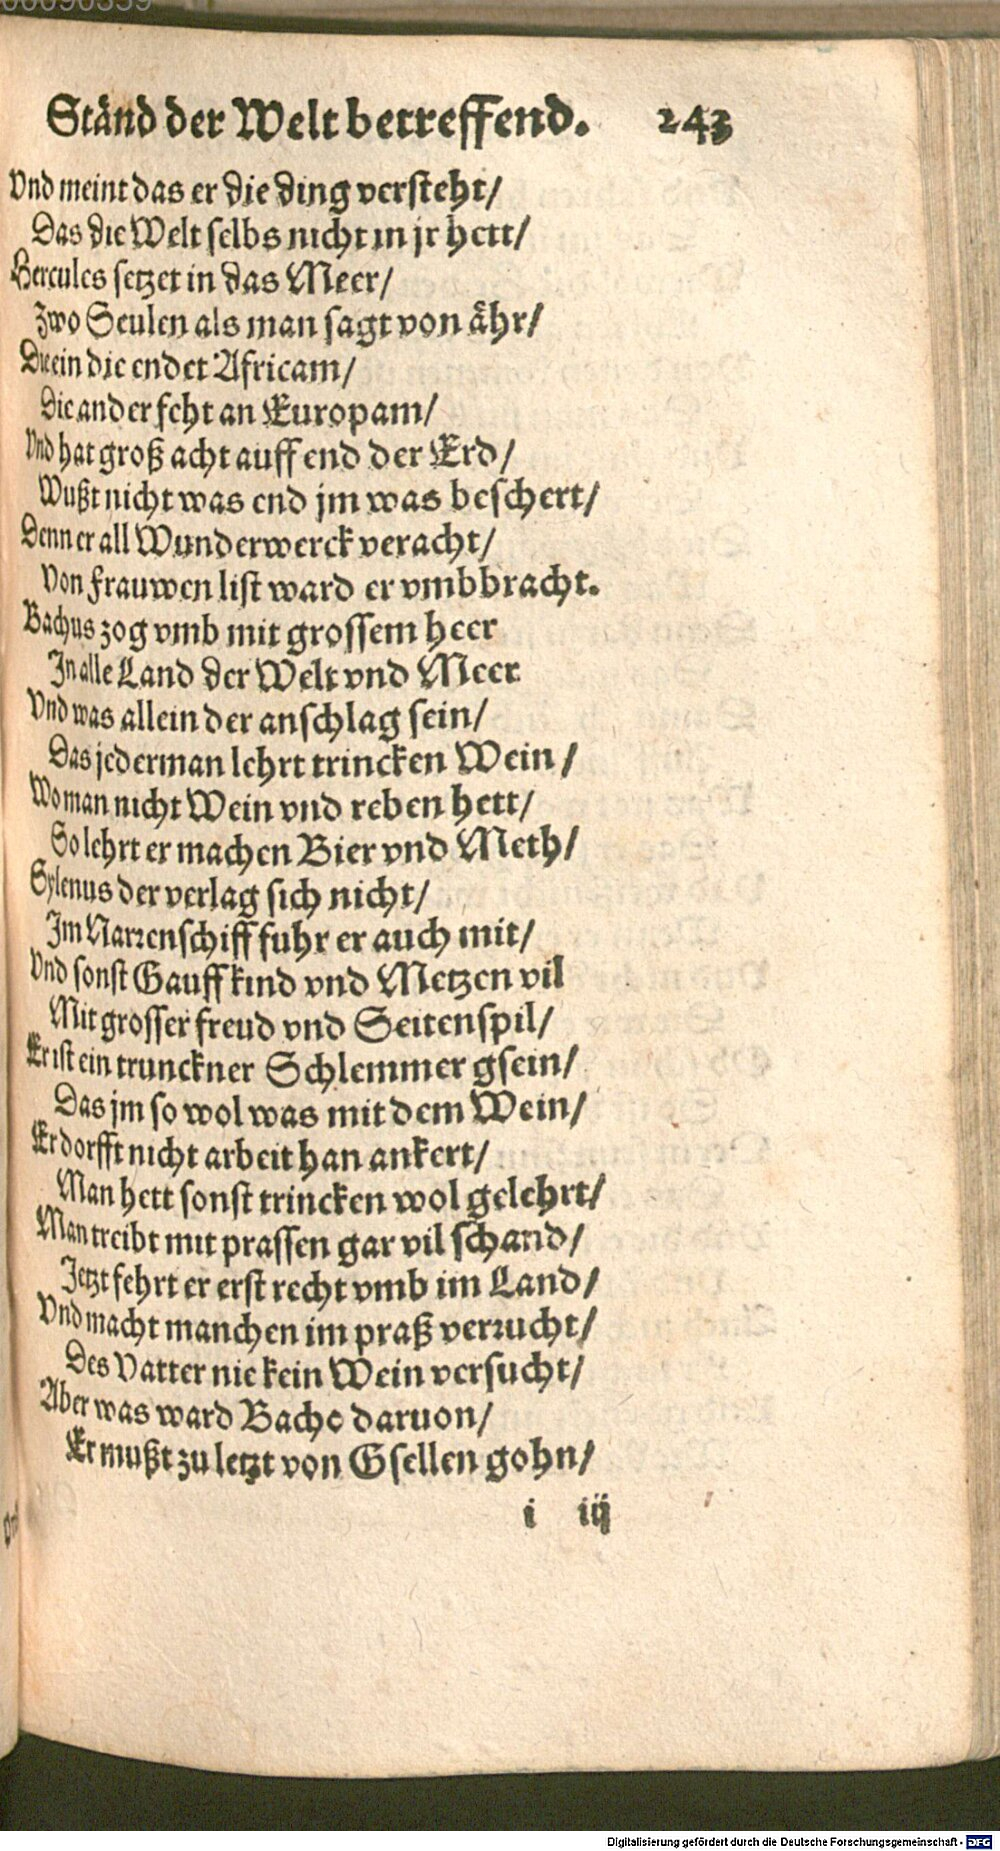 Ständ der Welt betreffend. 243
Vnd meint das er die ding versteht/
Das die Welt selbs nicht in jr hett/
Hercules setzet in das Meer/
Zwo Seulen als man sagt von ähr/
Die ein die endet Africam/
Die ander seht an Europam/
Vnd hat groß acht auff end der Erd/
Wußt nicht was end jm was beschert/
Denn er all Wunderwerck veracht/
Von frauwen list ward er vmbbracht.
Bachus zog vmb mit grossem heer
In alle Land der Welt vnd Meer
Vnd was allein der anschlag sein/
Das jederman lehrt trincken Wein/
Wo man nicht Wein vnd reben hett/
So lehrt er machen Bier vnd Meth/
Sylenus der verlag sich nicht/
Im Narrenschiff fuhr er auch mit/
Vnd sonst Gauffkind vnd Metzen vil
Mit grosser freud vnd Seitenspil/
Er ist ein trunckner Schlemmer gsein/
Das jm so wol was mit dem Wein/
Er dorfft nicht arbeit han ankert/
Man hett sonst trincken wol gelehrt/
Man treibt mit prassen gar vil schand/
Jetzt fehrt er erst recht vmb im Land/
Vnd macht manchen im praß verrucht/
Des Vatter nie kein Wein versucht/
Aber was ward Bacho daruon/
Er mußt zu letzt von Gsellen gohn/
i iij
Digitalisierung gefördert durch die Deutsche Forschungsgemeinschaft - DFG